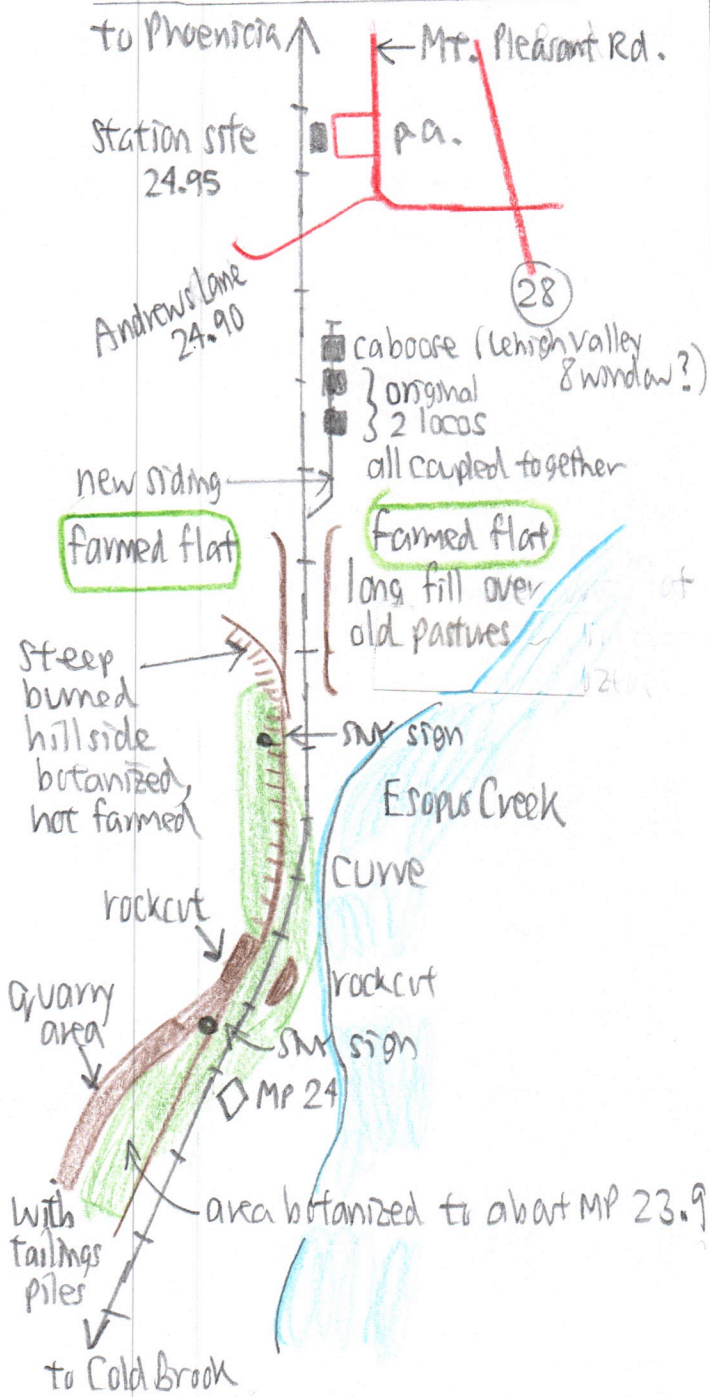 to Phoenicia
Mt. Pleasant Rd.
Station site
24.95
p.a.
Andrews Lane
24.90
28
caboose (Lehigh Valley
8 window?)
original
2 locos
all coupled together
new siding
farmed flat
farmed flat
long fill over
old pastures
steep
burned
hillside
botanized,
not farmed
SNY sign
Esopus Creek
curve
rockcut
rockcut
quarry
area
SNY sign
MP 24
area botanized to about MP 23.9
with
tailings
piles
to Cold Brook